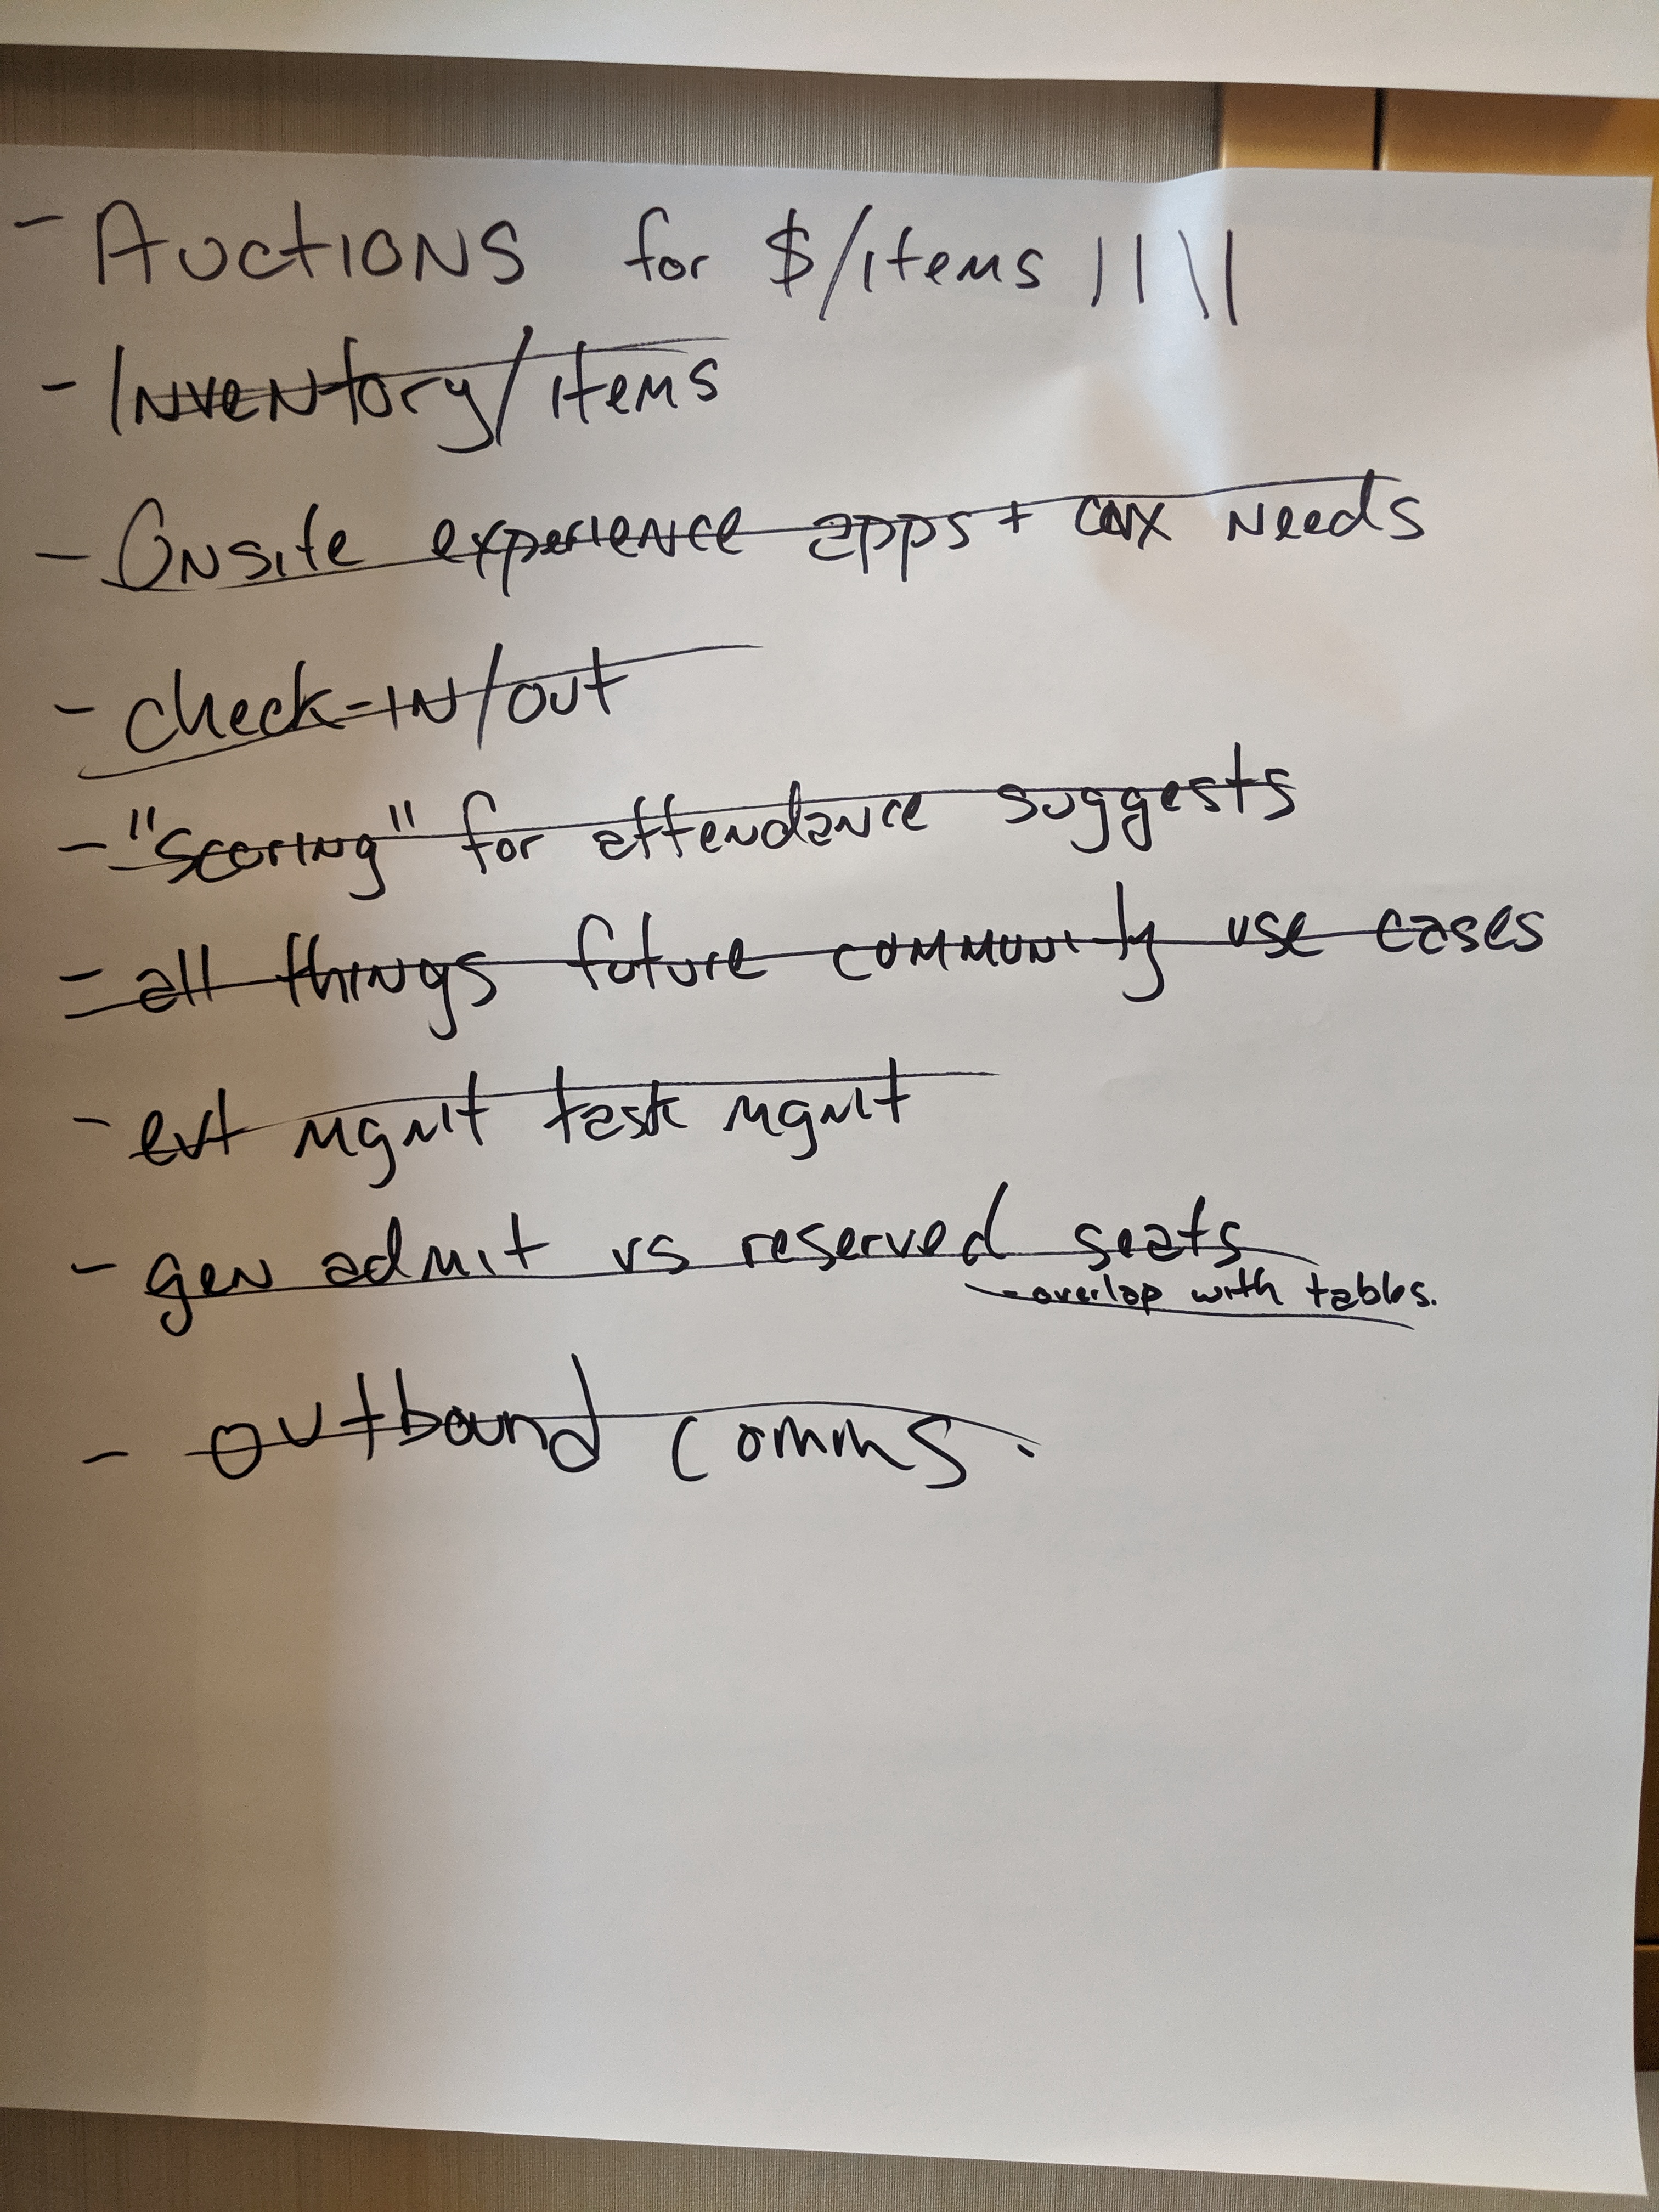 - Auctions for $/items ||||
- Inventory/items
- Onsite experience apps + cnx needs
- check-in/out
- "scoring" for attendance suggests
- all things future community use cases
- evt mgmt task mgmt
- gen admit vs reserved seats
- overlap with tables.
- outbound comms.